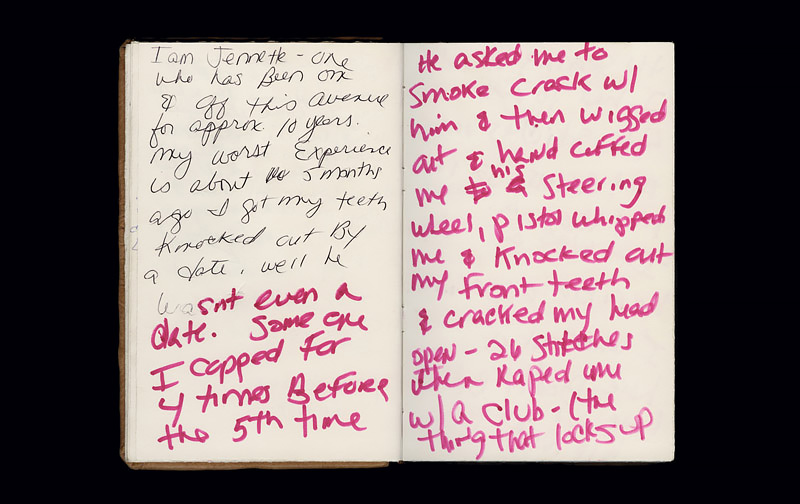 I am Jennette - one
who has Been on
& off this avenue
for approx. 10 years.
My worst Experience
is about 5 months
ago I got my teeth
Knocked out By
a date. well he
wasnt even a
date. Some one
I copped for
4 times Before
the 5th time
He asked me to
Smoke Crack w/
him & then wigged
out & hand cuffed
me to his Steering
wheel, pistol whipped
me & Knocked out
my front teeth
& cracked my head
open - 26 Stitches
then Raped me
w/ a club - (the
thing that locks up